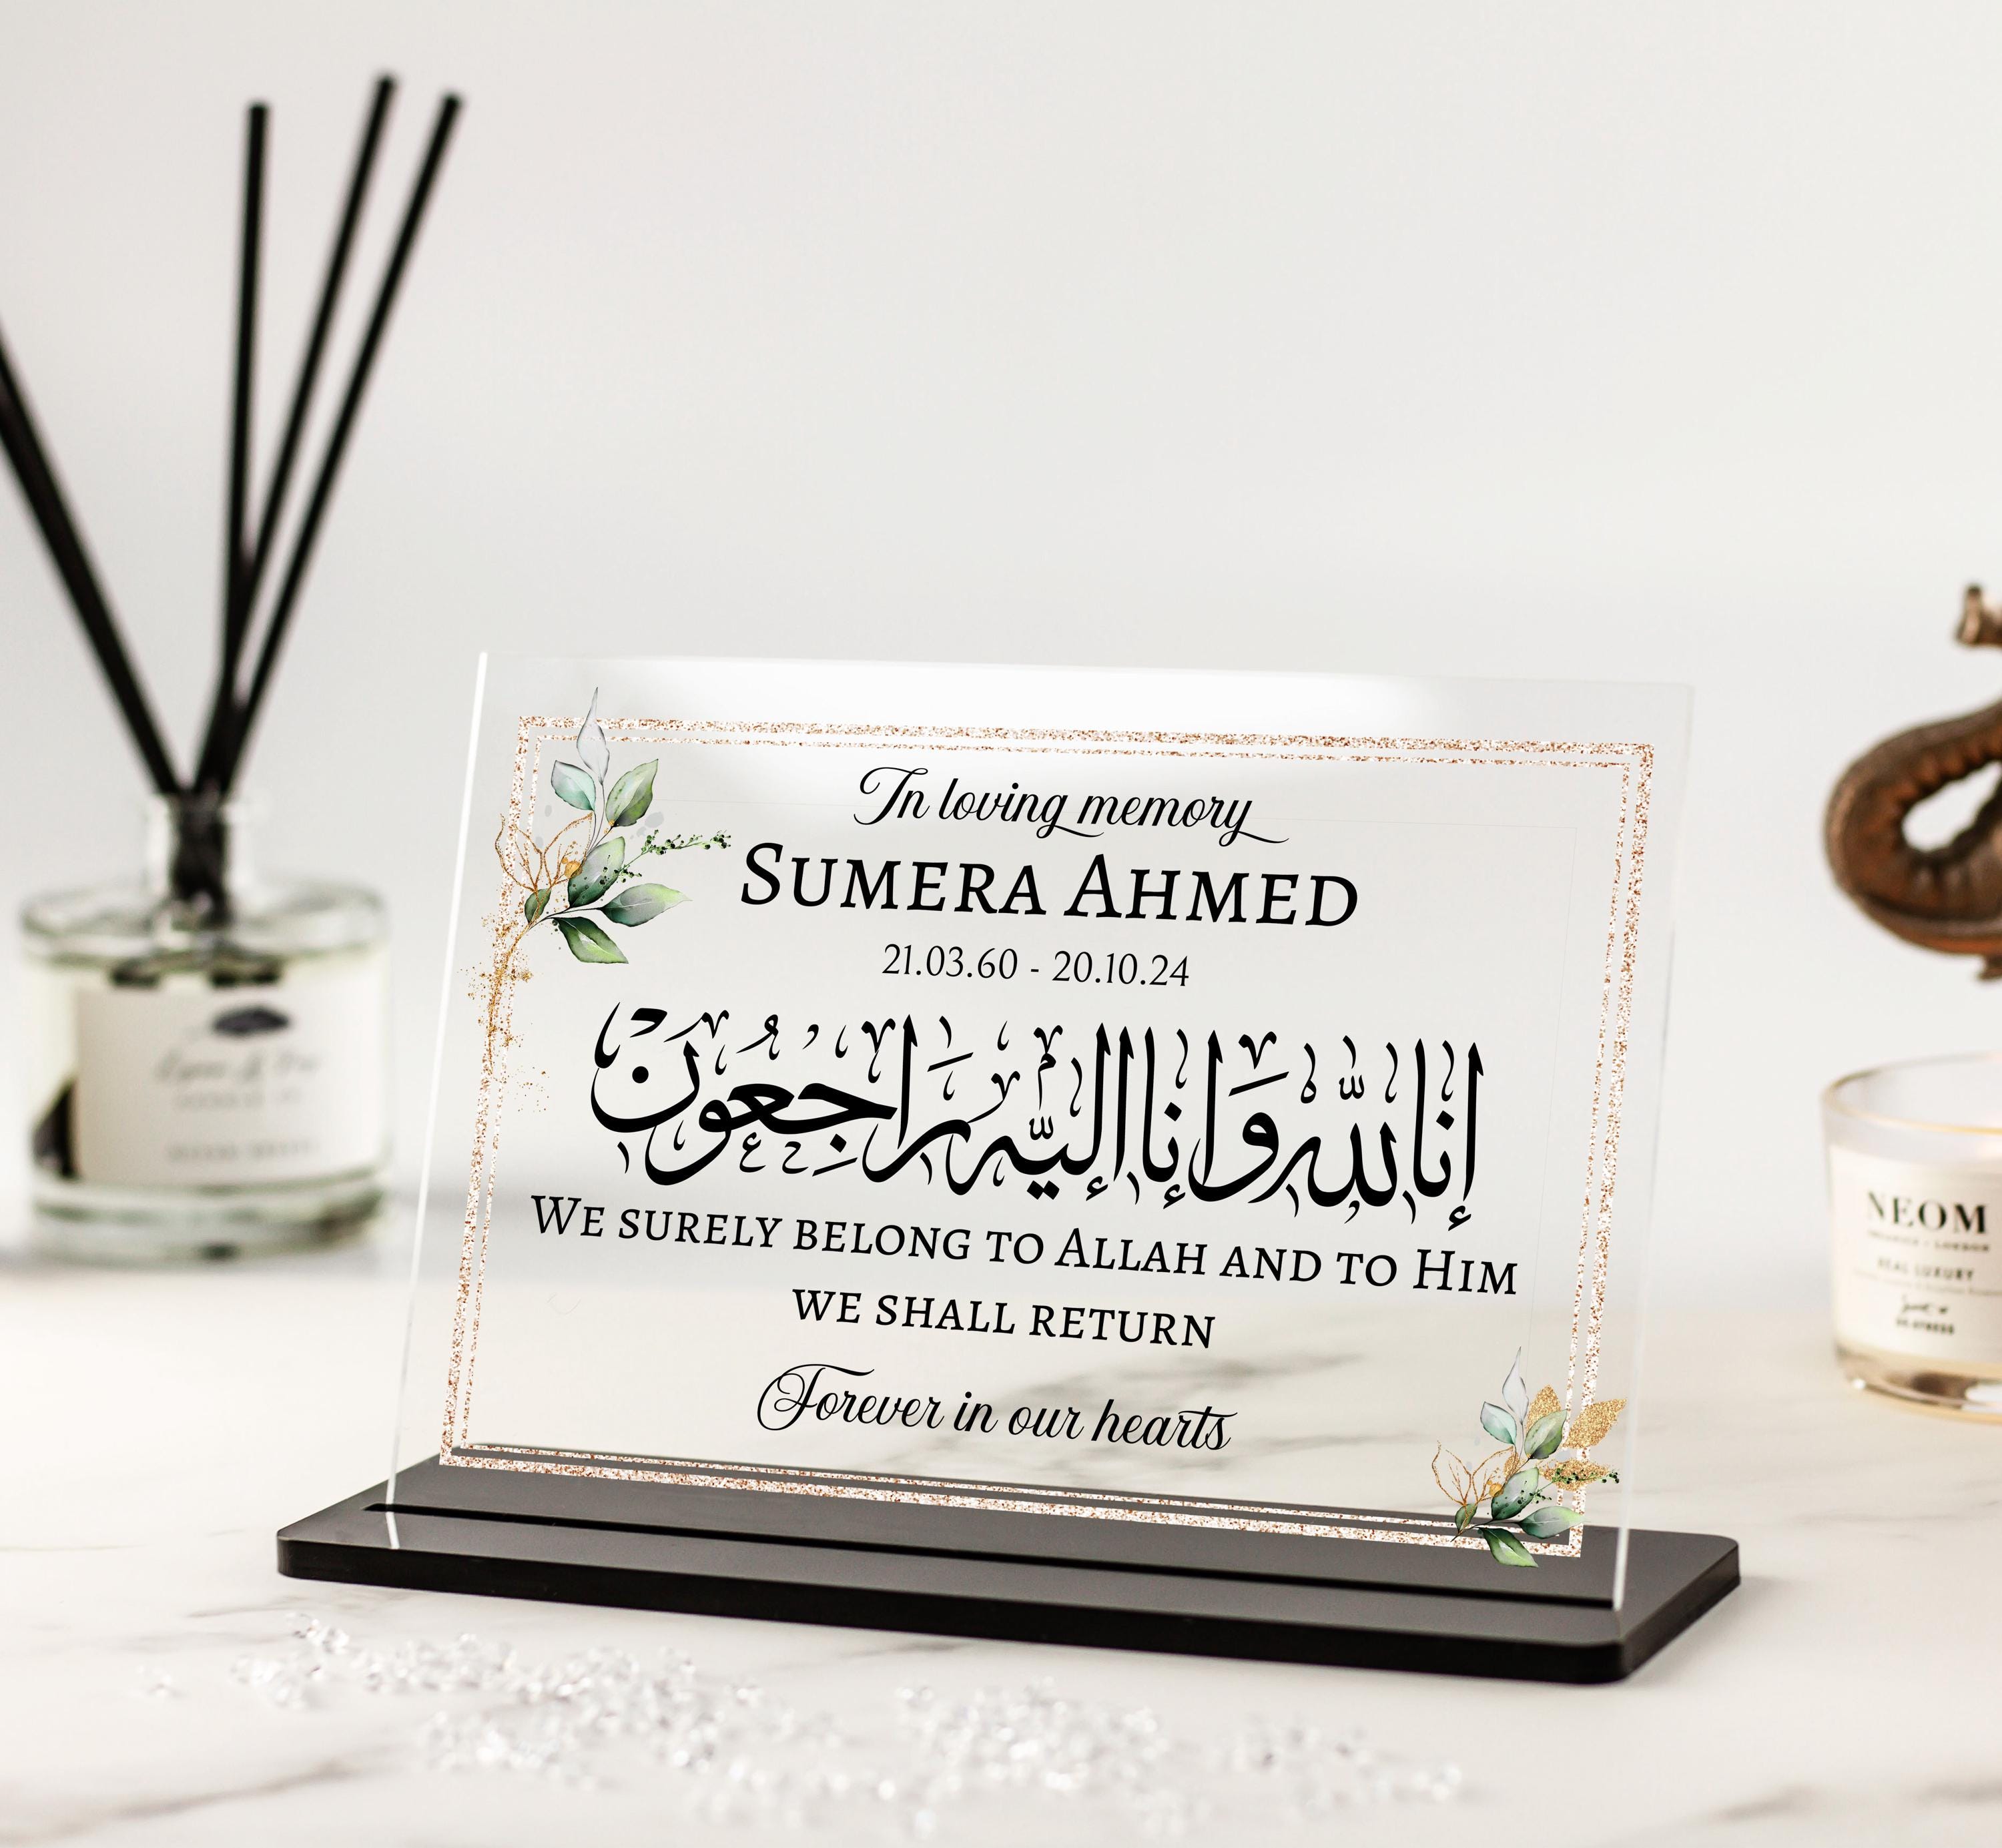 In loving memory
SUMERA AHMED
21.03.60 - 20.10.24
إِنَّا لِلَّٰهِ وَإِنَّا إِلَيْهِ رَاجِعُونَ
WE SURELY BELONG TO ALLAH AND TO HIM
WE SHALL RETURN
Forever in our hearts
NEOM
REAL LUXURY